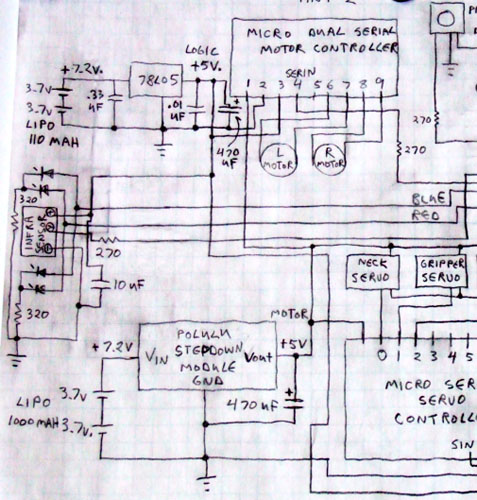 MICRO DUAL SERIAL
MOTOR CONTROLLER
SERIN
1 2 3 4 5 6 7 8 9
LOGIC
+5V.
+7.2V.
78L05
3.7V
3.7V.
.33
UF
.01
UF
470
UF
LIPO
110 MAH
L
MOTOR
R
MOTOR
270
270
320
INFRA
BLUE
RED
270
10 UF
320
NECK
SERVO
GRIPPER
SERVO
MOTOR
+5V
+7.2V
POLULU
STEPDOWN
MODULE
GND
VIN
VOUT
0 1 2 3 4 5
MICRO SER
SERVO
CONTROLL
SIN
3.7V
3.7V.
LIPO
1000 MAH
470 UF